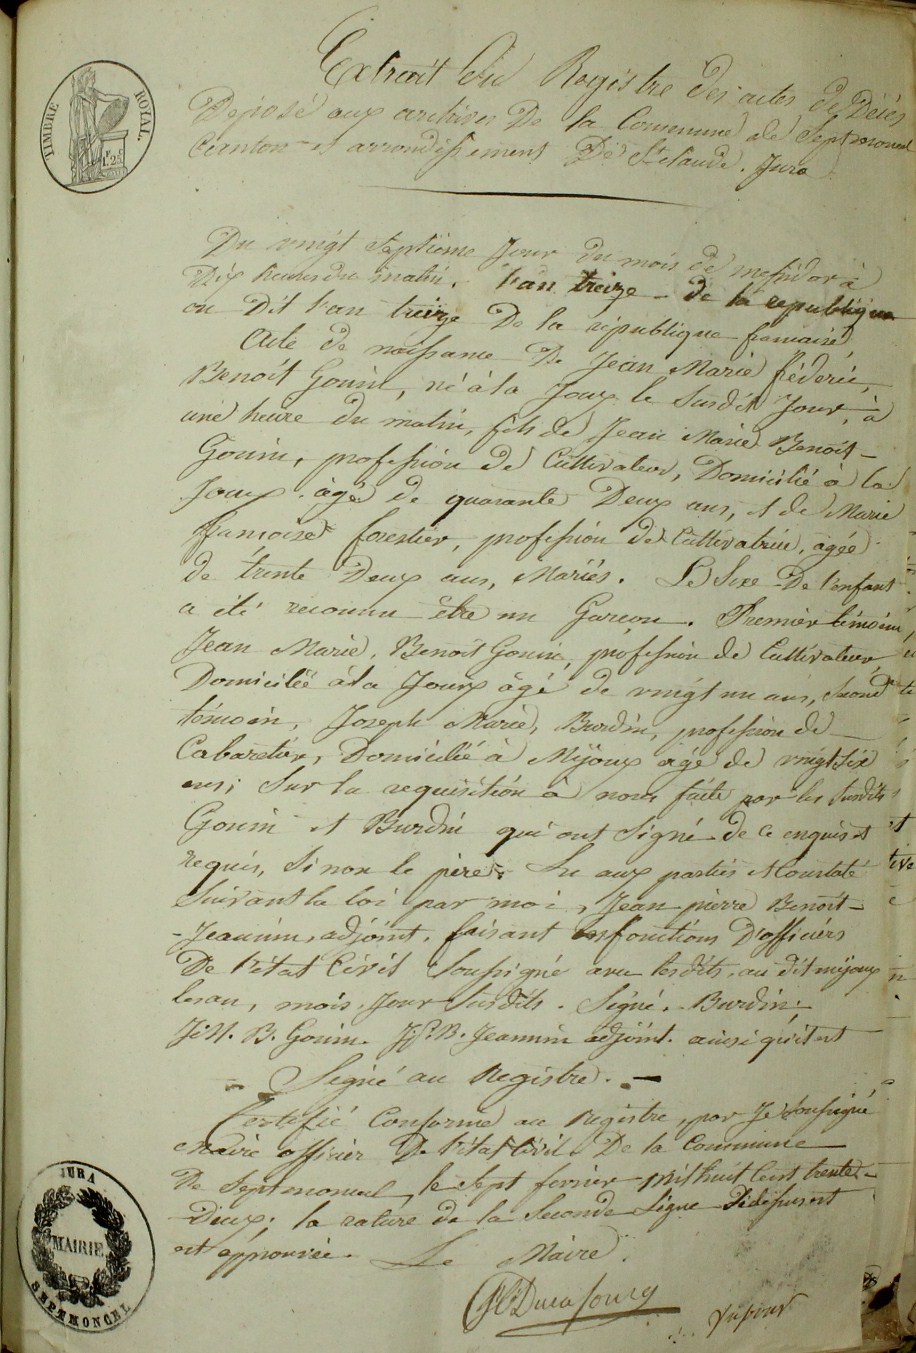 TIMBRE ROYAL.
1F 25C
Extrait du Registre des actes de Décès
Déposé aux archives De la Commune de Septmoncel
Canton et arrondissement De St Claude. Jura
Du vingt septieme Jour du mois de messidor à
Dix heures du matin. l'an treize - de la republique
ou Dit l'an treize De la république francaise
Acte de naissance De Jean Marie fréderic,
Benoît Gonin, né à la Joux le Susdit Jour, à
une heure du matin, fils de Jean Marie Benoît-
Gonin, profession de Cultivateur, Domicilié à la
Joux. âgé de quarante Deux ans, et de Marie
francoise forestier, profession de Cultivatrice, agée
de trente Deux ans, Mariés. Le Sexe De l'enfant
a été reconnu être un Garcon. Premier témoin,
Jean Marie, Benoît Gonin, profession de Cultivateur
Domicilié à la Joux âgé de vingt un ans, Second
témoin, Joseph Marie, Burdin, profession de
Cabaretier, Domicilié à Mijoux âgé de vingt Six
ans; Sur la requisition à nous faite par les Susdits
Gonin et Burdin qui ont Signé de ce enquis et
requis, Sinon le père. Lu aux parties et Constaté
Suivant la loi par moi, Jean pierre Benoît-
-Jeannin, adjoint, faisant les fonctions D'officiers
De l'état Civil Soussigné avec lesdits, au dit mijoux
les an, mois Jour Susdits. Signé. Burdin;
J. M. B. Gonin. J. P. B. Jeannin adjoint. ainsi qu'il est
Signé au Registre.
Certifié Conforme au Registre, par Je Soussigné
Maire officier De l'état Civil De la Commune
De Septmoncel, le Sept fevrier Mil huit Cent trente-
Deux; la rature de la Seconde Ligne
est approuvée. Le Maire.
JURA
MAIRIE
SEPTMONCEL